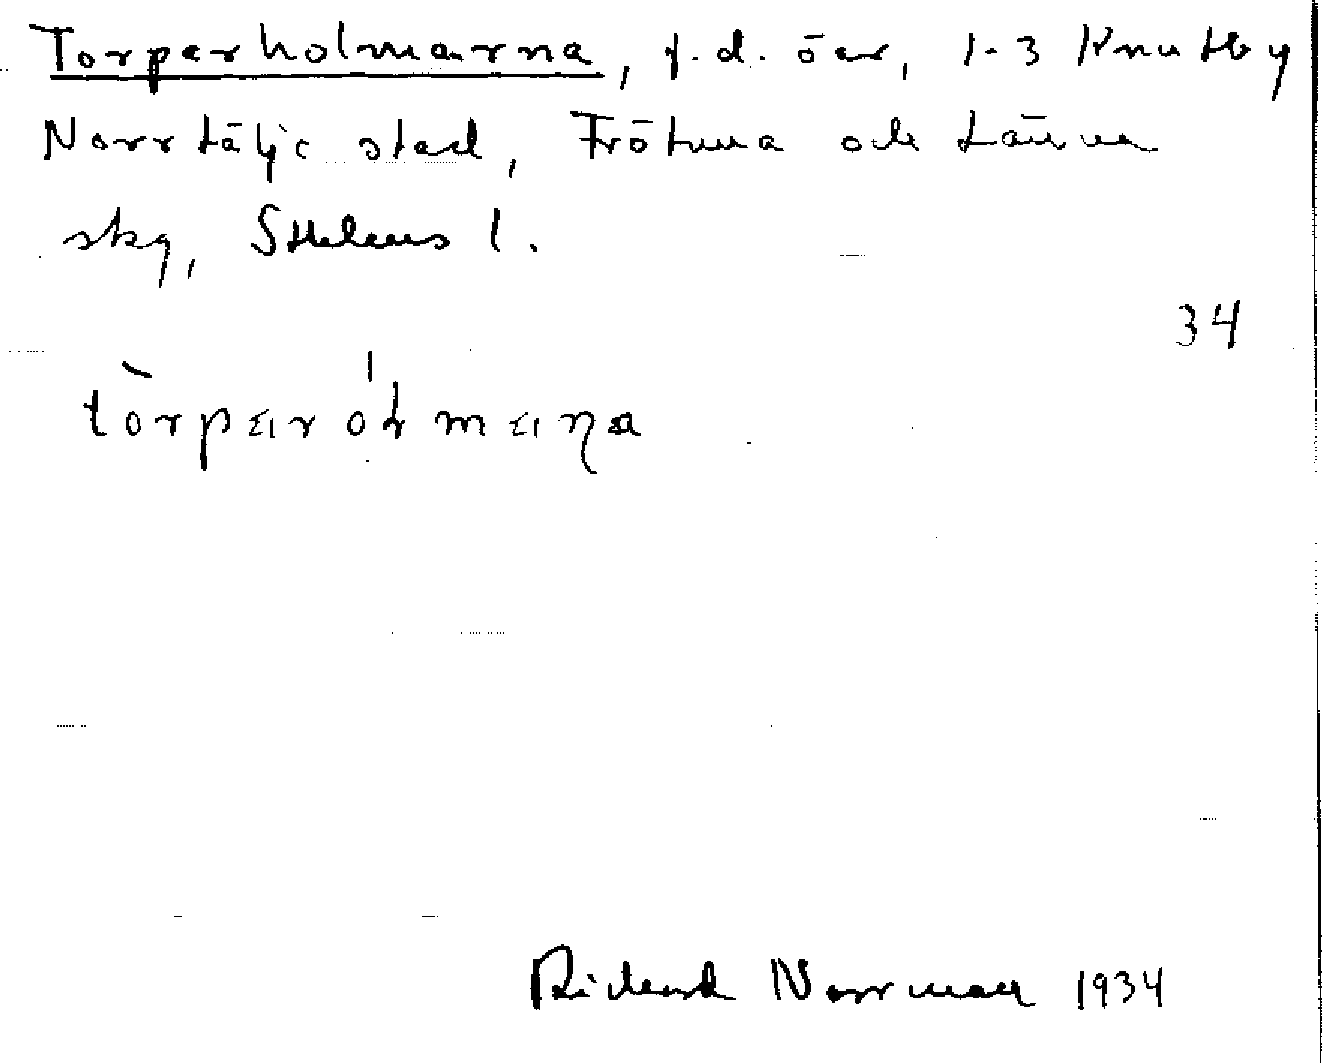 Torparholmarna, f.d. öar, 1-3 Knutby
Norrtälje stad, Frötuna och Länna
skg, Sthlms l.
34
tòrparóɫmaɳa
Rickard Norrman 1934